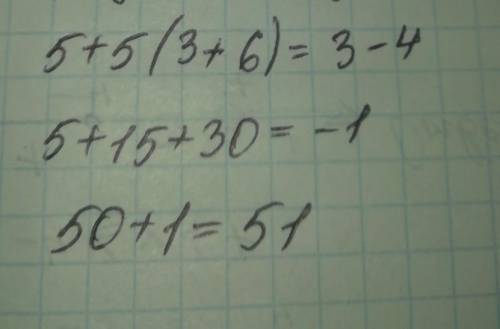 5+5(3+6)=3-4
5+15+30=-1
50+1=51